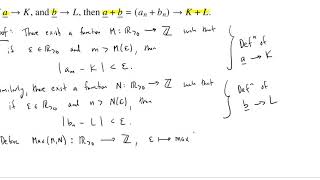 a → K, and b → L, then a + b = (aₙ + bₙ) → K + L.
: There exist a function M : ℝ>0 → ℤ such that
if ε ∈ ℝ>0 and m > M(ε), then
|aₘ - K| < ε.
Defⁿ of
a → K
similarly, there exist a function N : ℝ>0 → ℤ such that
if ε ∈ ℝ>0 and n > N(ε), then
|bₙ - L| < ε.
Defⁿ of
b → L
Define Max(M,N) : ℝ>0 → ℤ, ε ↦ max